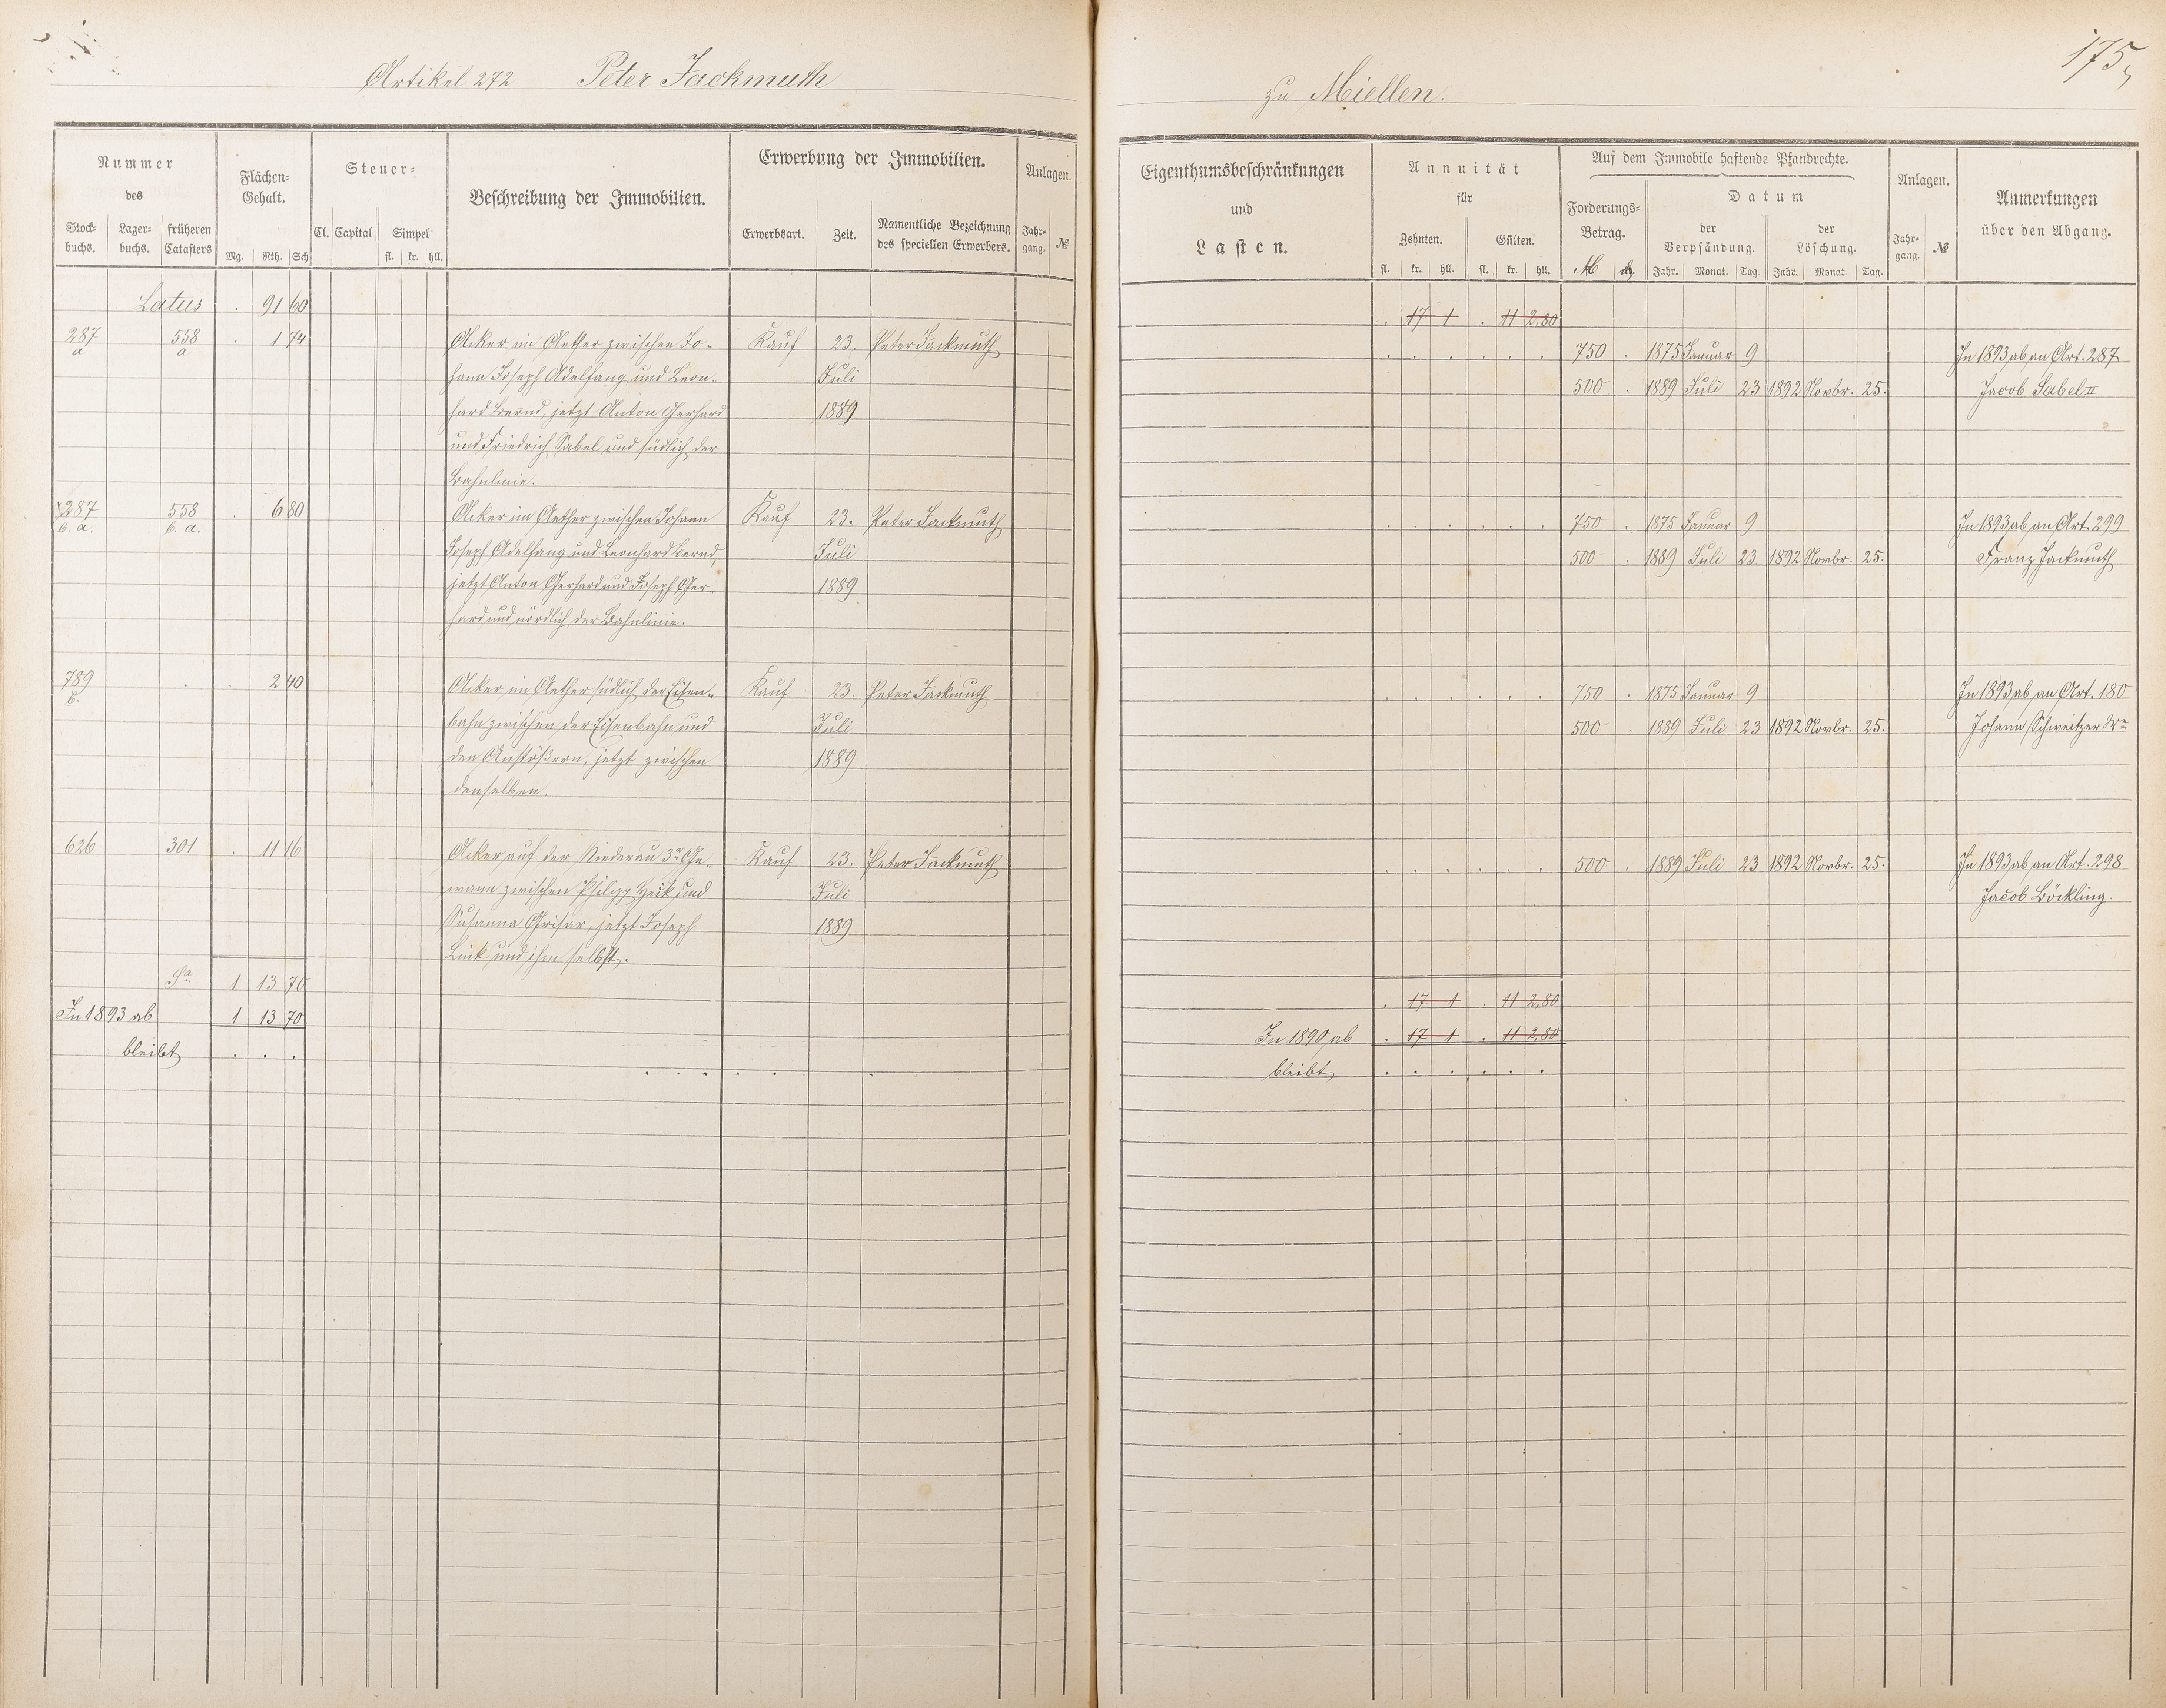 Artikel 272 Peter Jackmuth
zu Miellen.
175,
Nummer
des
Stock-
buchs.
Lager-
buchs.
früheren
Catasters
Flächen-
Gehalt.
Mg. Rth. Sch
Steuer-
Cl. Capital Simpel
fl. kr. hll.
Beschreibung der Immobilien.
Erwerbung der Immobilien.
Erwerbsart. Zeit.
Namentliche Bezeichnung
des speciellen Erwerbers.
Anlagen.
Jahr-
gang. №
Eigenthumsbeschränkungen
und
Lasten.
Annuität
für
Zehnten. Gülten.
fl. kr. hll. fl. kr. hll.
Auf dem Immobile haftende Pfandrechte.
Forderungs-
Betrag.
M ₰
Datum
der
Verpfändung.
der
Löschung.
Jahr. Monat. Tag. Jahr. Monat. Tag.
Anlagen.
Jahr-
gang. №
Anmerkungen
über den Abgang.
Latus . 91 60
. 17 1 . 11 2,80
287 558 . 1 74 Acker im Aether zwischen Jo- Kauf 23. Peter Jackmuth
a a
hann Joseph Adelfang und Leon- Juli
hard Bernd, jetzt Anton Gerhard 1889
und Friedrich Sabel und südlich der
Bahnlinie.
750 . 1875 Januar 9 In 1893 ab an Art. 287
500 . 1889 Juli 23 1892 Novbr. 25. Jacob Sabel II
287 558 . 6 80 Acker im Aether zwischen Johann Kauf 23. Peter Jackmuth
b. a. b. a.
Joseph Adelfang und Leonhard Bernd, Juli
jetzt Anton Gerhard und Joseph Ger- 1889
hard und nördlich der Bahnlinie.
750 . 1875 Januar 9 In 1893 ab an Art. 299
500 . 1889 Juli 23 1892 Novbr. 25. Franz Jackmuth
789 . . 2 40 Acker im Aether südlich der Eisen- Kauf 23. Peter Jackmuth
b.
bahn zwischen der Eisenbahn und Juli
den Anstößern, jetzt zwischen 1889
denselben.
750 . 1875 Januar 9 In 1893 ab an Art. 180
500 . 1889 Juli 23 1892 Novbr. 25. Johann Schweitzer We
626 301 . 11 16 Acker auf der Niederau 3r Ge- Kauf 23. Peter Jackmuth
wann zwischen Philipp Heik und Juli
Susanna Grisar, jetzt Joseph 1889
Link und ihm selbst.
500 . 1889 Juli 23 1892 Novbr. 25. In 1893 ab an Art. 298
Jacob Böckling.
Sa 1 13 70
In 1893 ab 1 13 70
bleibt . . .
. 17 1 . 11 2,80
In 1890 ab . 17 1 . 11 2,80
bleibt . . . . . .